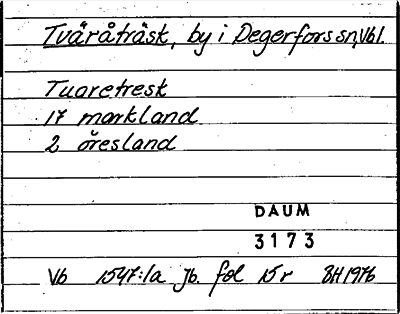 Tväråträsk, by i Degerfors sn, Vbl.
Tuaretresk
17 markland
2 öresland
DAUM
3173
Vb 1547:1a Jb. fol 15 r BH 1976